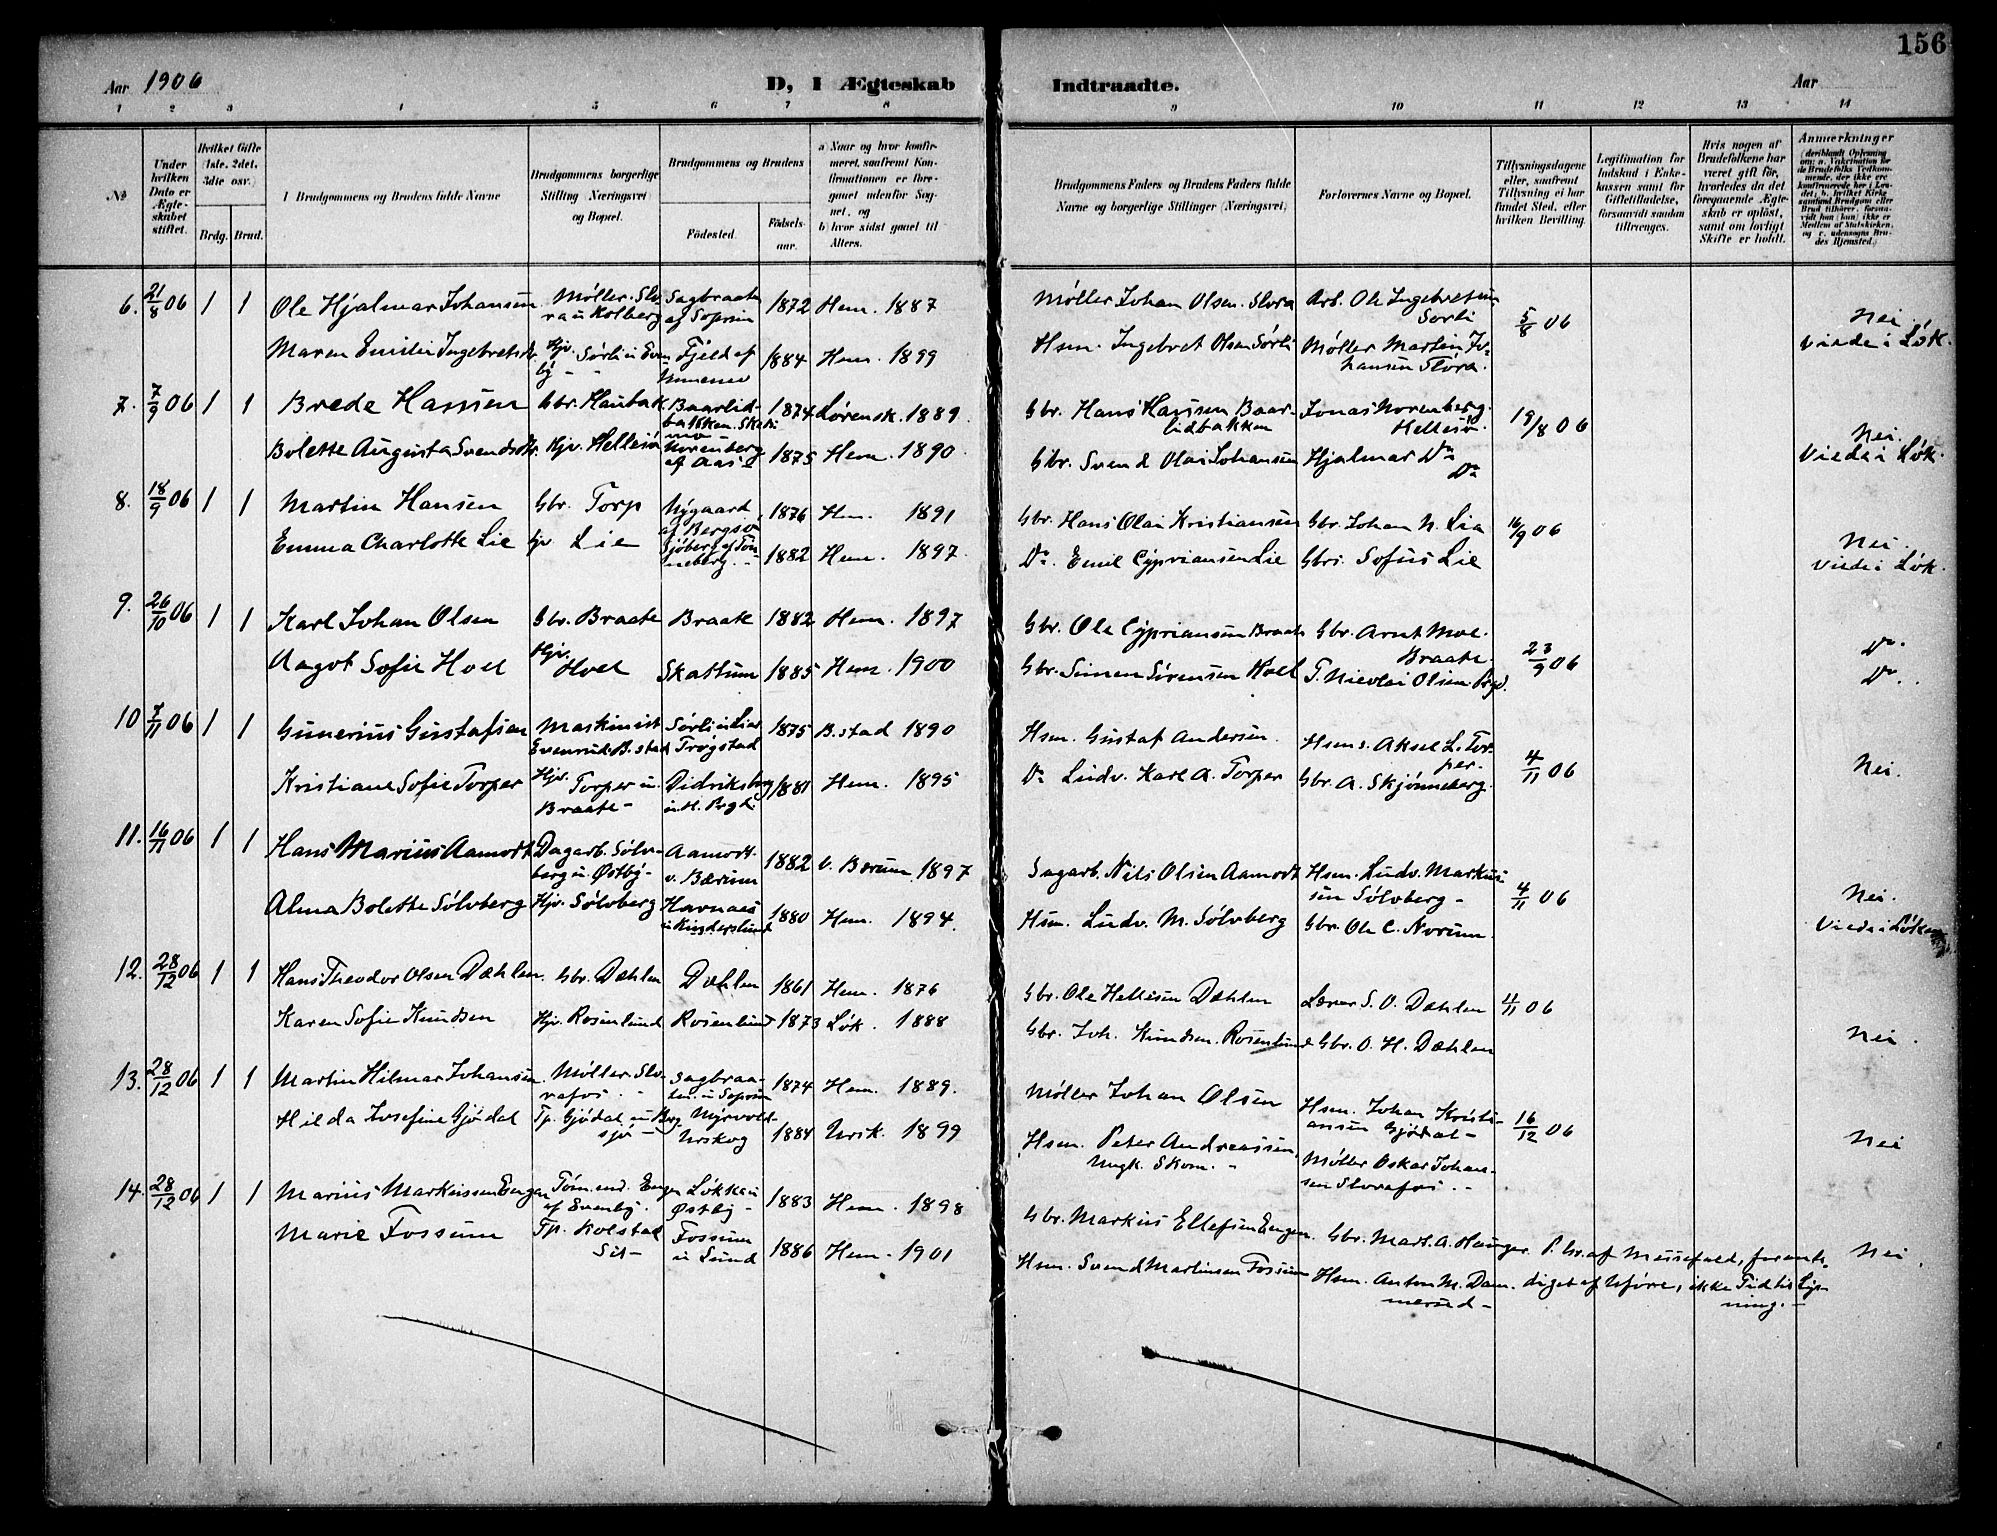 156
Aar 1906 D, I Ægteskab Indtraadte. Aar
1 2 3 4 5 6 7 8 9 10 11 12 13 14
No
Under hvilken Dato er Ægteskabet stiftet.
Hvilket Gifte (1ste, 2det, 3die osv.)
Brdg. Brud.
Brudgommens og Brudens fulde Navne
Brudgommens borgerlige Stilling (Næringsvei) og Bopæl.
Brudgommens og Brudens
Fødested.
Fødselsaar.
a) Naar og hvor konfirmeret, saafremt Konfirmationen er foregaaet udenfor Sognet, og
b) hvor sidst gaaet til Alters.
Brudgommens Faders og Brudens Faders fulde Navne og borgerlige Stillinger (Næringsvei)
Forlovernes Navne og Bopæl.
Tillysningsdagene eller, saafremt Tillysning ei har fundet Sted, efter hvilken Bevilling.
Legitimation for Indskud i Enkekassen samt for Giftetilladelse, forsaavidt saadan tiltrænges.
Hvis nogen af Brudefolkene har været gift før, hvorledes da det foregaaende Ægteskab er opløst, samt om lovligt Skifte er holdt.
Anmerkninger
6. 21/8 06 1 1 Ole Hjalmar Johansen Møller. Slora u Kolberg Sagbraaten af Soprim 1872 Hem. 1887 Møller Johan Olsen. Slora Arb. Ole Ingebretsen Sørli 5/8 06 Nei.
Maren Emilie Ingebretsdr. Hjv. Sørli u Evenby Fjeld af 1884 Hem. 1899 Hsm. Ingebret Olsen Sørli Møller Martin Johansen Slora. Viede i Løk.
7. 7/9 06 1 1 Brede Hansen Gbr. Haubak Baarlidbakken. 1874 Lørensk. 1889 Gbr. Hans Hansen Baarlidbakken Jonas Norenberg Hellesø 19/8 06 Nei.
Bolette Augusta Svendsdtr. Hjv. Hellesø Norenberg af Aas 1875 Hem. 1890 Gbr. Svend Olai Johansen Hjalmar Do Do Viede i Løk.
8. 18/9 06 1 1 Martin Hansen Gbr. Torp Nygaard af Bergs 1876 Hem. 1891 Gbr. Hans Olai Kristiansen Gbr. Johan N. Lia 16/9 06 Nei.
Emma Charlotte Lie Hjv Lie Sjøberg af Tønneberg. 1882 Hem. 1897. Do. Emil Cypriansen Lie Gbrs. Sofus Lie Viede i Løk.
9. 26/10 06 1 1 Karl Johan Olsen Gbr. Braate Braate 1882 Hem. 1897 Gbr. Ole Cypriansen Braate Gbr. Arnt Moe. Braate. 23/9 06 Do.
Aagot Sofie Hoel Hjv. Hoel Skattum 1885 Hem. 1900 Gbr. Simen Sørensen Hoel T. Nicolai Olsen Prgd. Do.
10 7/11 06 1 1 Gunerius Gustafsen Maskinist Evenrud. B.stad Sørli u Liar Trøgstad 1875 B.stad 1890 Hsm. Gustaf Andersen. Hsms. Aksel L. Torper. 4/11 06 Nei.
Kristiane Sofie Torper Hjv. Torper u. Braate Didriksbg u. H. Prgd. 1881 Hem. 1895 Do Ludv. Karl A. Torper Gbr. A. Skjønneberg.
11. 16/11 06 1 1 Hans Marius Aamodt Dagarb. Sølvberg u. Østby Aamodt. v. Bærum 1882 V. Bærum 1897 Sagarb. Nils Olsen Aamodt Hsm. Ludv. Markussen Sølvberg 4/11 06 Nei.
Alma Bolette Sølvberg Hjv. Sølvberg Havnaas u Kinderslund 1880 Hem. 1894. Hsm. Ludv. M. Sølvberg Gbr. Ole C. Norum. Viede i Løken
12. 28/12 06 1 1 Hans Theodor Olsen Dæhlen. Gbr. Dæhlen Dæhlen 1861 Hem. 1876 Gbr. Ole Hellesen Dæhlen Lærer S. O. Dæhlen 4/11 06
Karen Sofie Knudsen Hjv. Rosenlund Rosenlund 1873 Løk. 1888 Gbr. Joh. Knudsen. Rosenlund Gbr. O. H. Dæhlen Nei.
13. 28/12 06 1 1 Martin Hilmar Johansen Møller Slorafos. Sagbraaten. u Soprim 1874 Hem. 1889. Møller Johan Olsen Hsm. Johan Kristiansen Gjødal 16/12 06 Nei
Hilda Josefine Gjødal Tp. Gjødal u Bergsjø Myrvold Urskog 1884 Ursk. 1899 Hsm. Peter Andreassen Ungk. Skom. Møller Oskar Johansen Slorafos.
14. 28/12 06 1 1 Marius Markussen Engen Tøm. end. Engen af Evenby. Løkka u Østby 1883 Hem. 1898 Gbr. Markus Ellefsen Engen Gbr. Mart. A. Haugar P. Gr. af Messefald, foranlediget af Uføre, ikke Tid til Lysning. Nei
Marie Fossum Tp. Kolstad Fossum u Lund 1886 Hem. 1901 Hsm. Svend Martinsen Fossum Hsm. Anton M. Dammerud